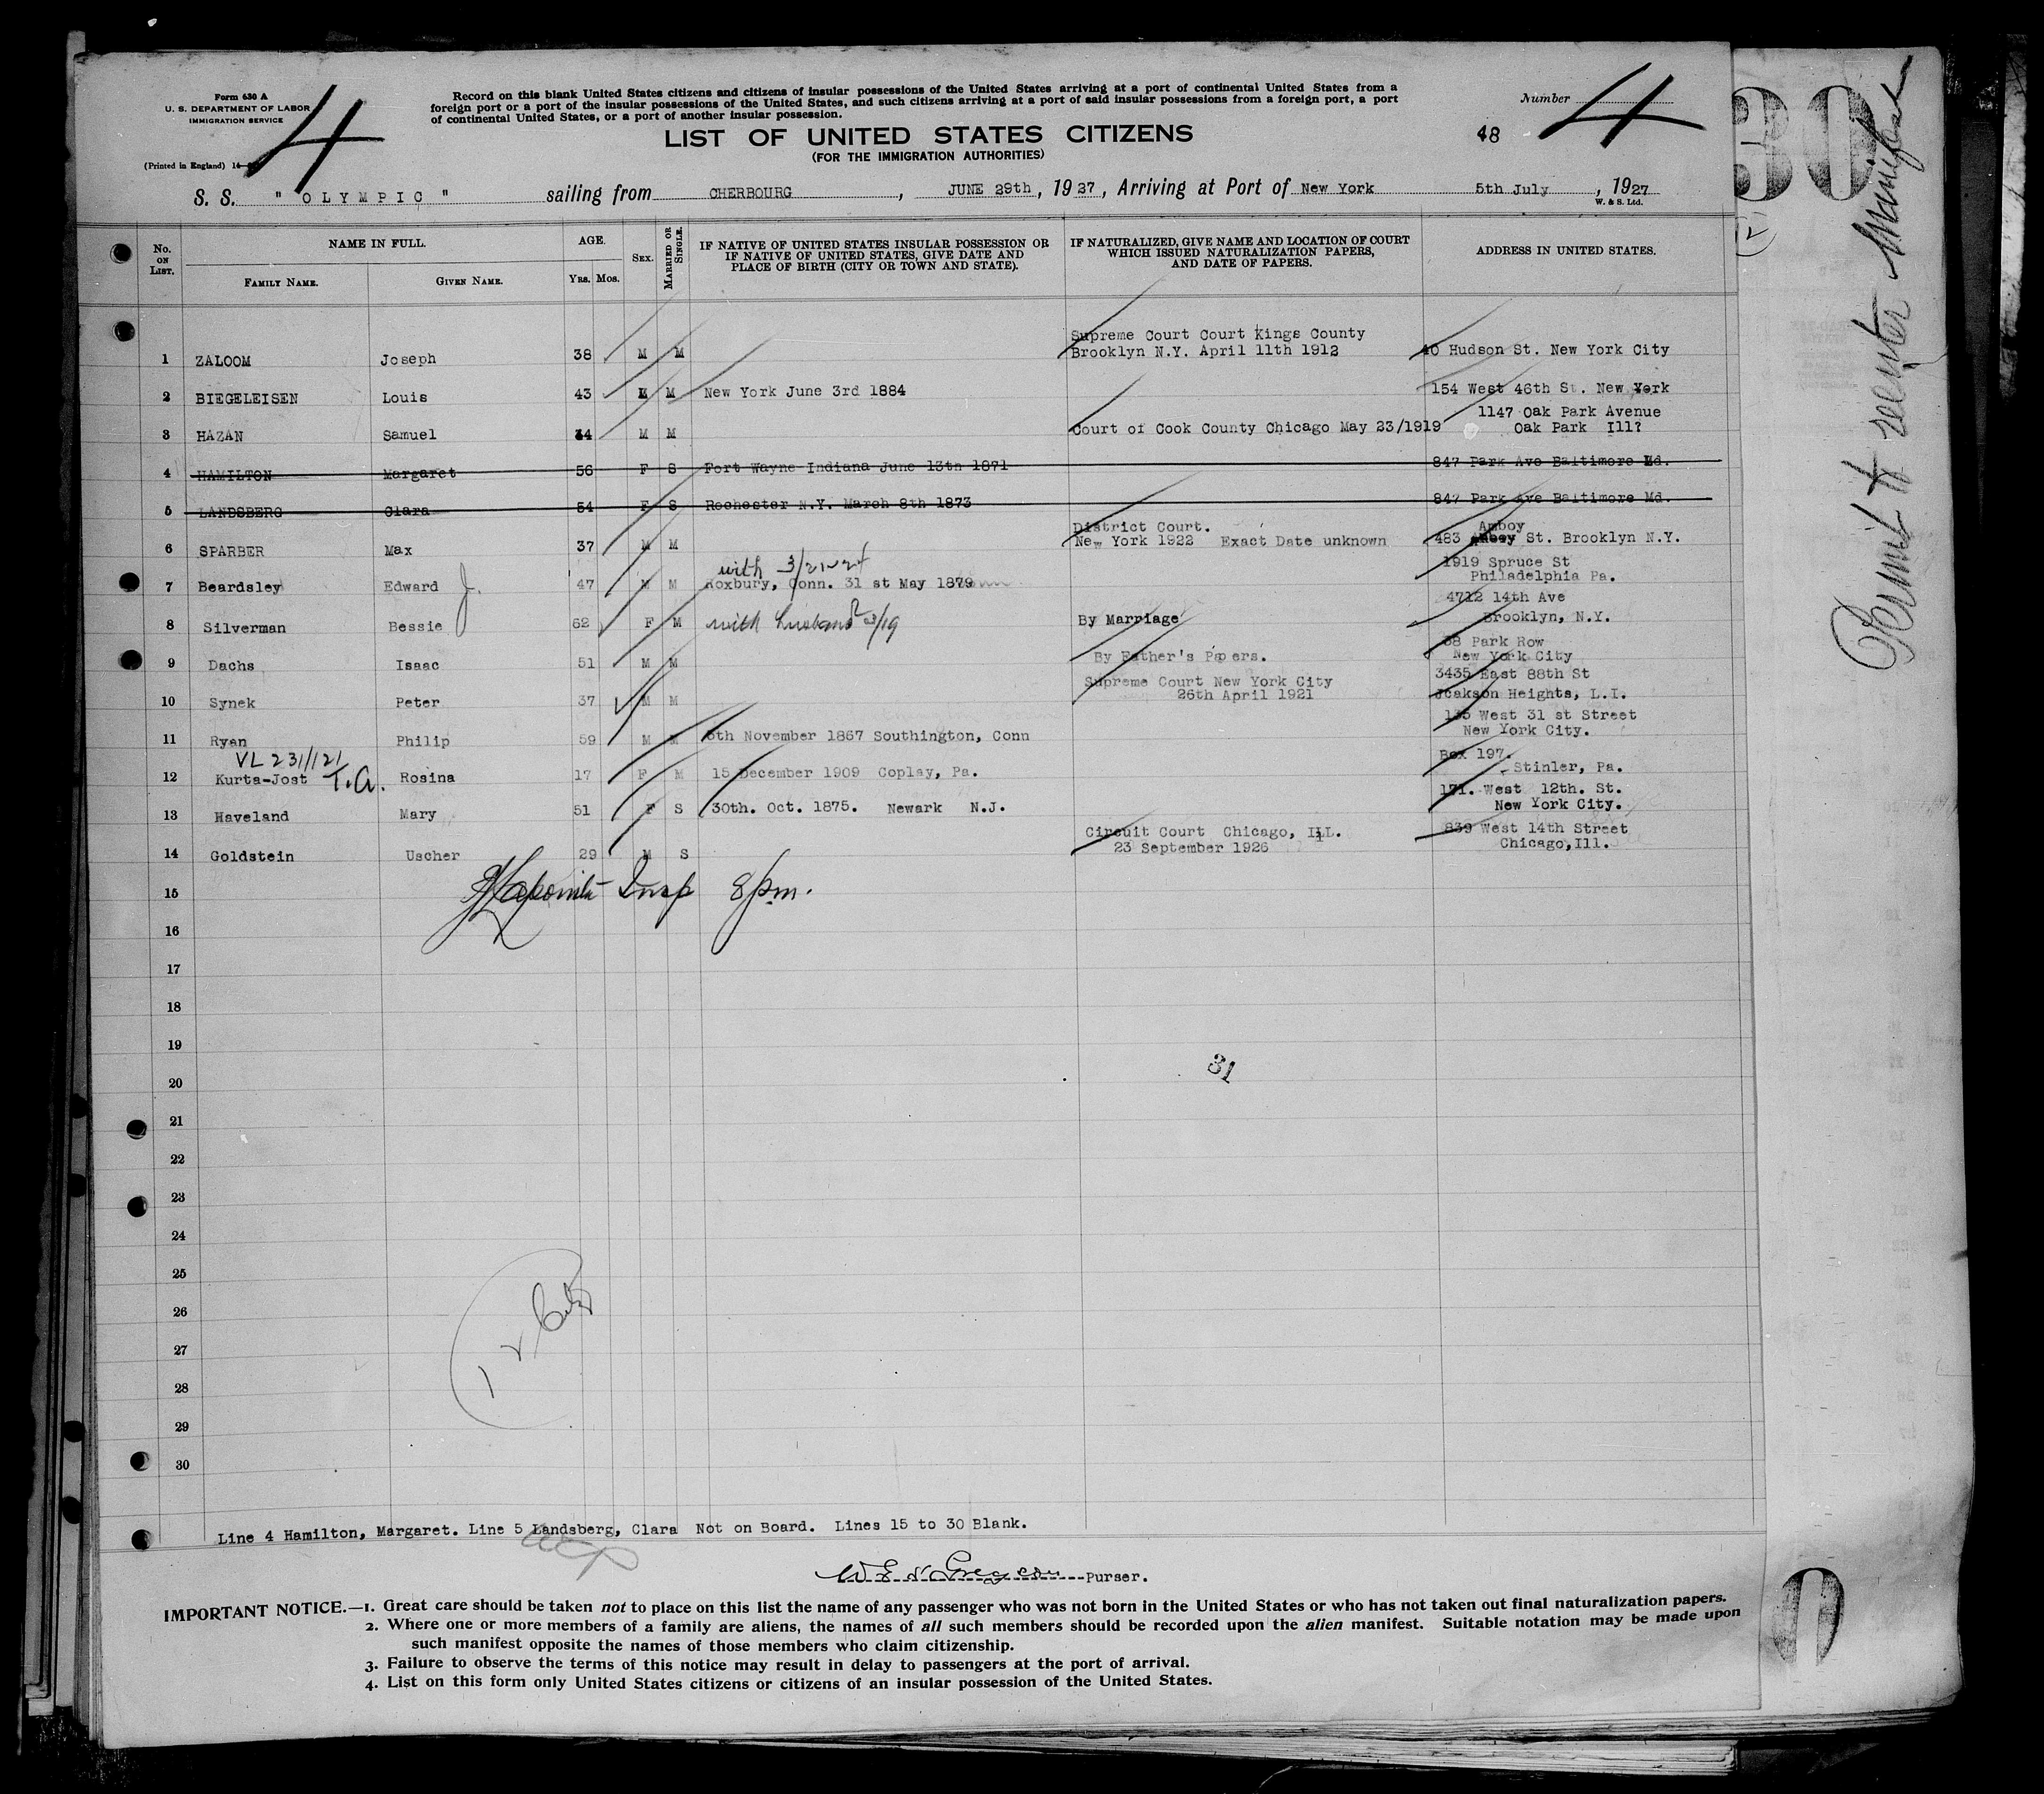 Form 630 A
U. S. DEPARTMENT OF LABOR
IMMIGRATION SERVICE
(Printed in England)
4
Record on this blank United States citizens and citizens of insular possessions of the United States arriving at a port of continental United States from a
foreign port or a port of the insular possessions of the United States, and such citizens arriving at a port of said insular possessions from a foreign port, a port
of continental United States, or a port of another insular possession.
LIST OF UNITED STATES CITIZENS
(FOR THE IMMIGRATION AUTHORITIES)
Number 4
48
30
S. S. " OLYMPIC " sailing from CHERBOURG, JUNE 29th, 1927, Arriving at Port of New York 5th July, 1927
W. & S. Ltd.
No. ON LIST. NAME IN FULL. AGE. SEX. MARRIED OR SINGLE. IF NATIVE OF UNITED STATES INSULAR POSSESSION OR IF NATIVE OF UNITED STATES, GIVE DATE AND PLACE OF BIRTH (CITY OR TOWN AND STATE). IF NATURALIZED, GIVE NAME AND LOCATION OF COURT WHICH ISSUED NATURALIZATION PAPERS, AND DATE OF PAPERS. ADDRESS IN UNITED STATES.
FAMILY NAME. GIVEN NAME. YRS. MOS.
Supreme Court Court Kings County
1 ZALOOM Joseph 38 M M Brooklyn N.Y. April 11th 1912 40 Hudson St. New York City
2 BIEGELEISEN Louis 43 M M New York June 3rd 1884 154 West 46th St. New York
1147 Oak Park Avenue
3 HAZAN Samuel 34 M M Court of Cook County Chicago May 23/1919 Oak Park Ill?
4 HAMILTON Margaret 56 F S Fort Wayne Indiana June 13th 1871 847 Park Ave Baltimore Md.
5 LANDSBERG Clara 54 F S Rochester N.Y. March 8th 1873 847 Park Ave Baltimore Md.
District Court. Amboy
6 SPARBER Max 37 M M New York 1922 Exact Date unknown 483 St. Brooklyn N.Y.
with 1919 Spruce St
7 Beardsley Edward J. 47 M M Roxbury, Conn. 31 st May 1879 Philadelphia Pa.
4712 14th Ave
8 Silverman Bessie 62 F M with husband By Marriage Brooklyn, N.Y.
38 Park Row
9 Dachs Isaac 51 M M By Father's Papers. New York City
Supreme Court New York City 3435 East 88th St
10 Synek Peter 37 M M 26th April 1921 Jcakson Heights, L.I.
135 West 31 st Street
11 Ryan Philip 59 M M 6th November 1867 Southington, Conn New York City.
VL 231/121 Box 197.
12 Kurta-Jost T.A. Rosina 17 F M 15 December 1909 Coplay, Pa. Stinler, Pa.
171. West 12th. St.
13 Haveland Mary 51 F S 30th. Oct. 1875. Newark N.J. New York City.
Circuit Court Chicago, ILL. 839 West 14th Street
14 Goldstein Uscher 29 M S 23 September 1926 Chicago, Ill.
15 Insp 8 pm.
16
17
18
19
20
31
21
22
23
24
25
26
27
28
29
30
Line 4 Hamilton, Margaret. Line 5 Landsberg, Clara Not on Board. Lines 15 to 30 Blank.
Purser.
IMPORTANT NOTICE.—1. Great care should be taken not to place on this list the name of any passenger who was not born in the United States or who has not taken out final naturalization papers.
2. Where one or more members of a family are aliens, the names of all such members should be recorded upon the alien manifest. Suitable notation may be made upon
such manifest opposite the names of those members who claim citizenship.
3. Failure to observe the terms of this notice may result in delay to passengers at the port of arrival.
4. List on this form only United States citizens or citizens of an insular possession of the United States.
Permit to reenter Manifest